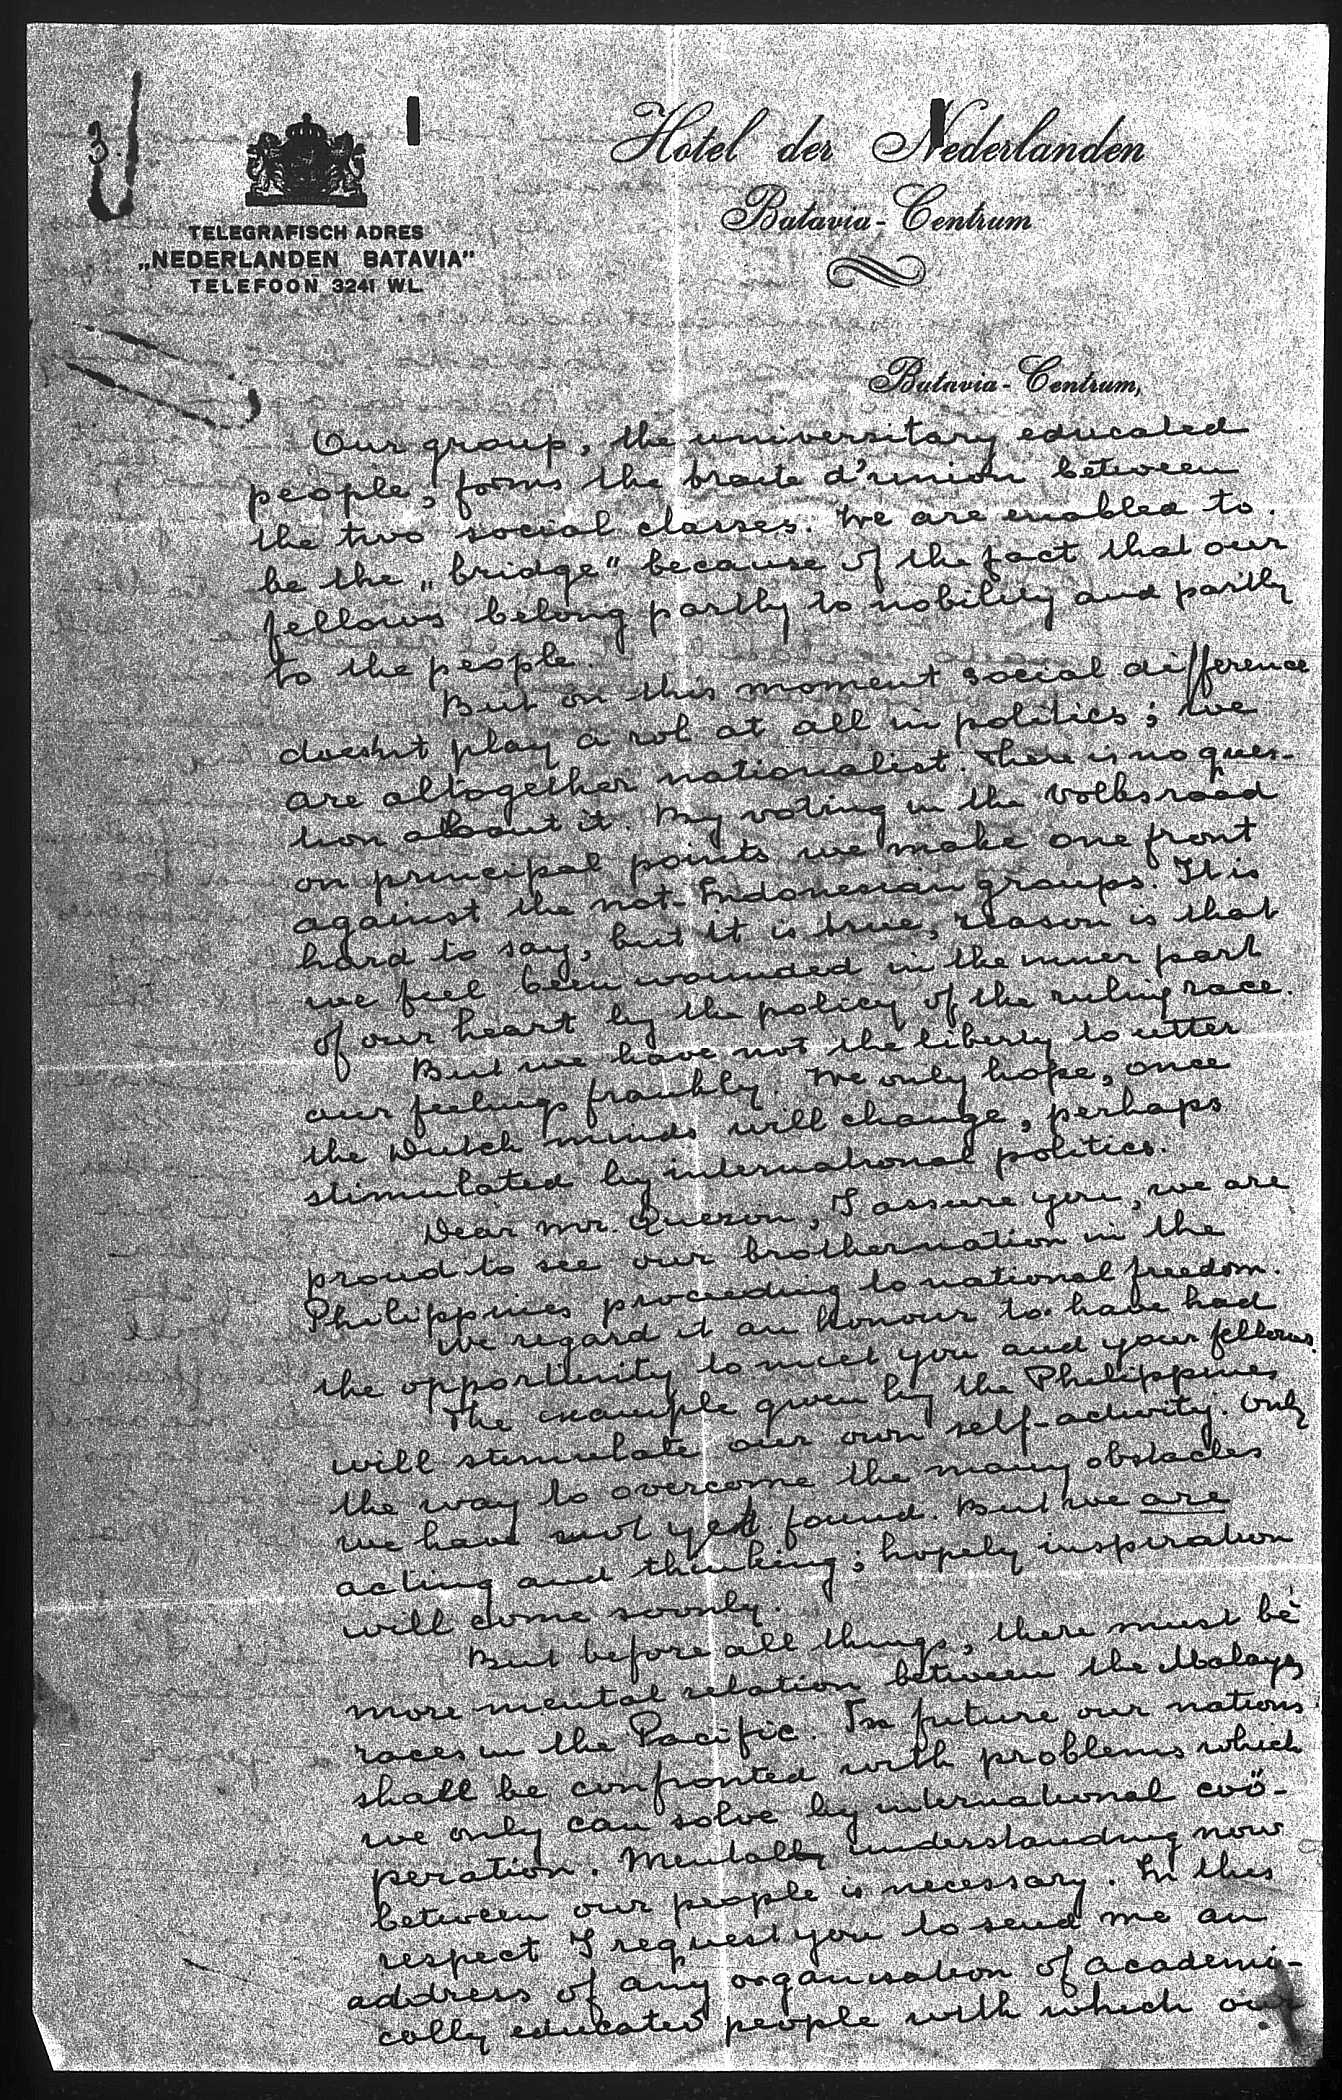 3.
Hotel der Nederlanden
Batavia-Centrum
TELEGRAFISCH ADRES
„NEDERLANDEN BATAVIA"
TELEFOON 3241 WL.
Batavia-Centrum,
Our group, the universitary educated
people, forms the traite d'union between
the two social classes. We are enabled to
be the „bridge" because of the fact that our
fellows belong partly to nobility and partly
to the people.
But on this moment social difference
doesnt play a rol at all in politics; we
are altogether nationalist. There is no ques-
tion about it. By voting in the Volksraad
on principal points we make one front
against the not-Indonesian groups. It is
hard to say, but it is true, reason is that
we feel been wounded in the inner part
of our heart by the policy of the ruling race.
But we have not the liberty to utter
our feelings frankly. We only hope, once
the Dutch minds will change, perhaps
stimulated by international politics.
Dear Mr. Quezon, I assure you, we are
proud to see our brothernation in the
Philippines proceeding to national freedom.
We regard it an honour to have had
the opportunity to meet you and your fellows.
The example given by the Philippines
will stimulate our own self-activity. Only
the way to overcome the many obstacles
we have not yet found. But we are
acting and thinking; hopely inspiration
will come soonly.
But before all things, there must be
more mental relation between the Malays
races in the Pacific. In future our nations
shall be confronted with problems which
we only can solve by international coö-
peration. Mentally understanding now
between our people is necessary. In this
respect I request you to send me an
address of any organisation of academi-
cally educated people with which our